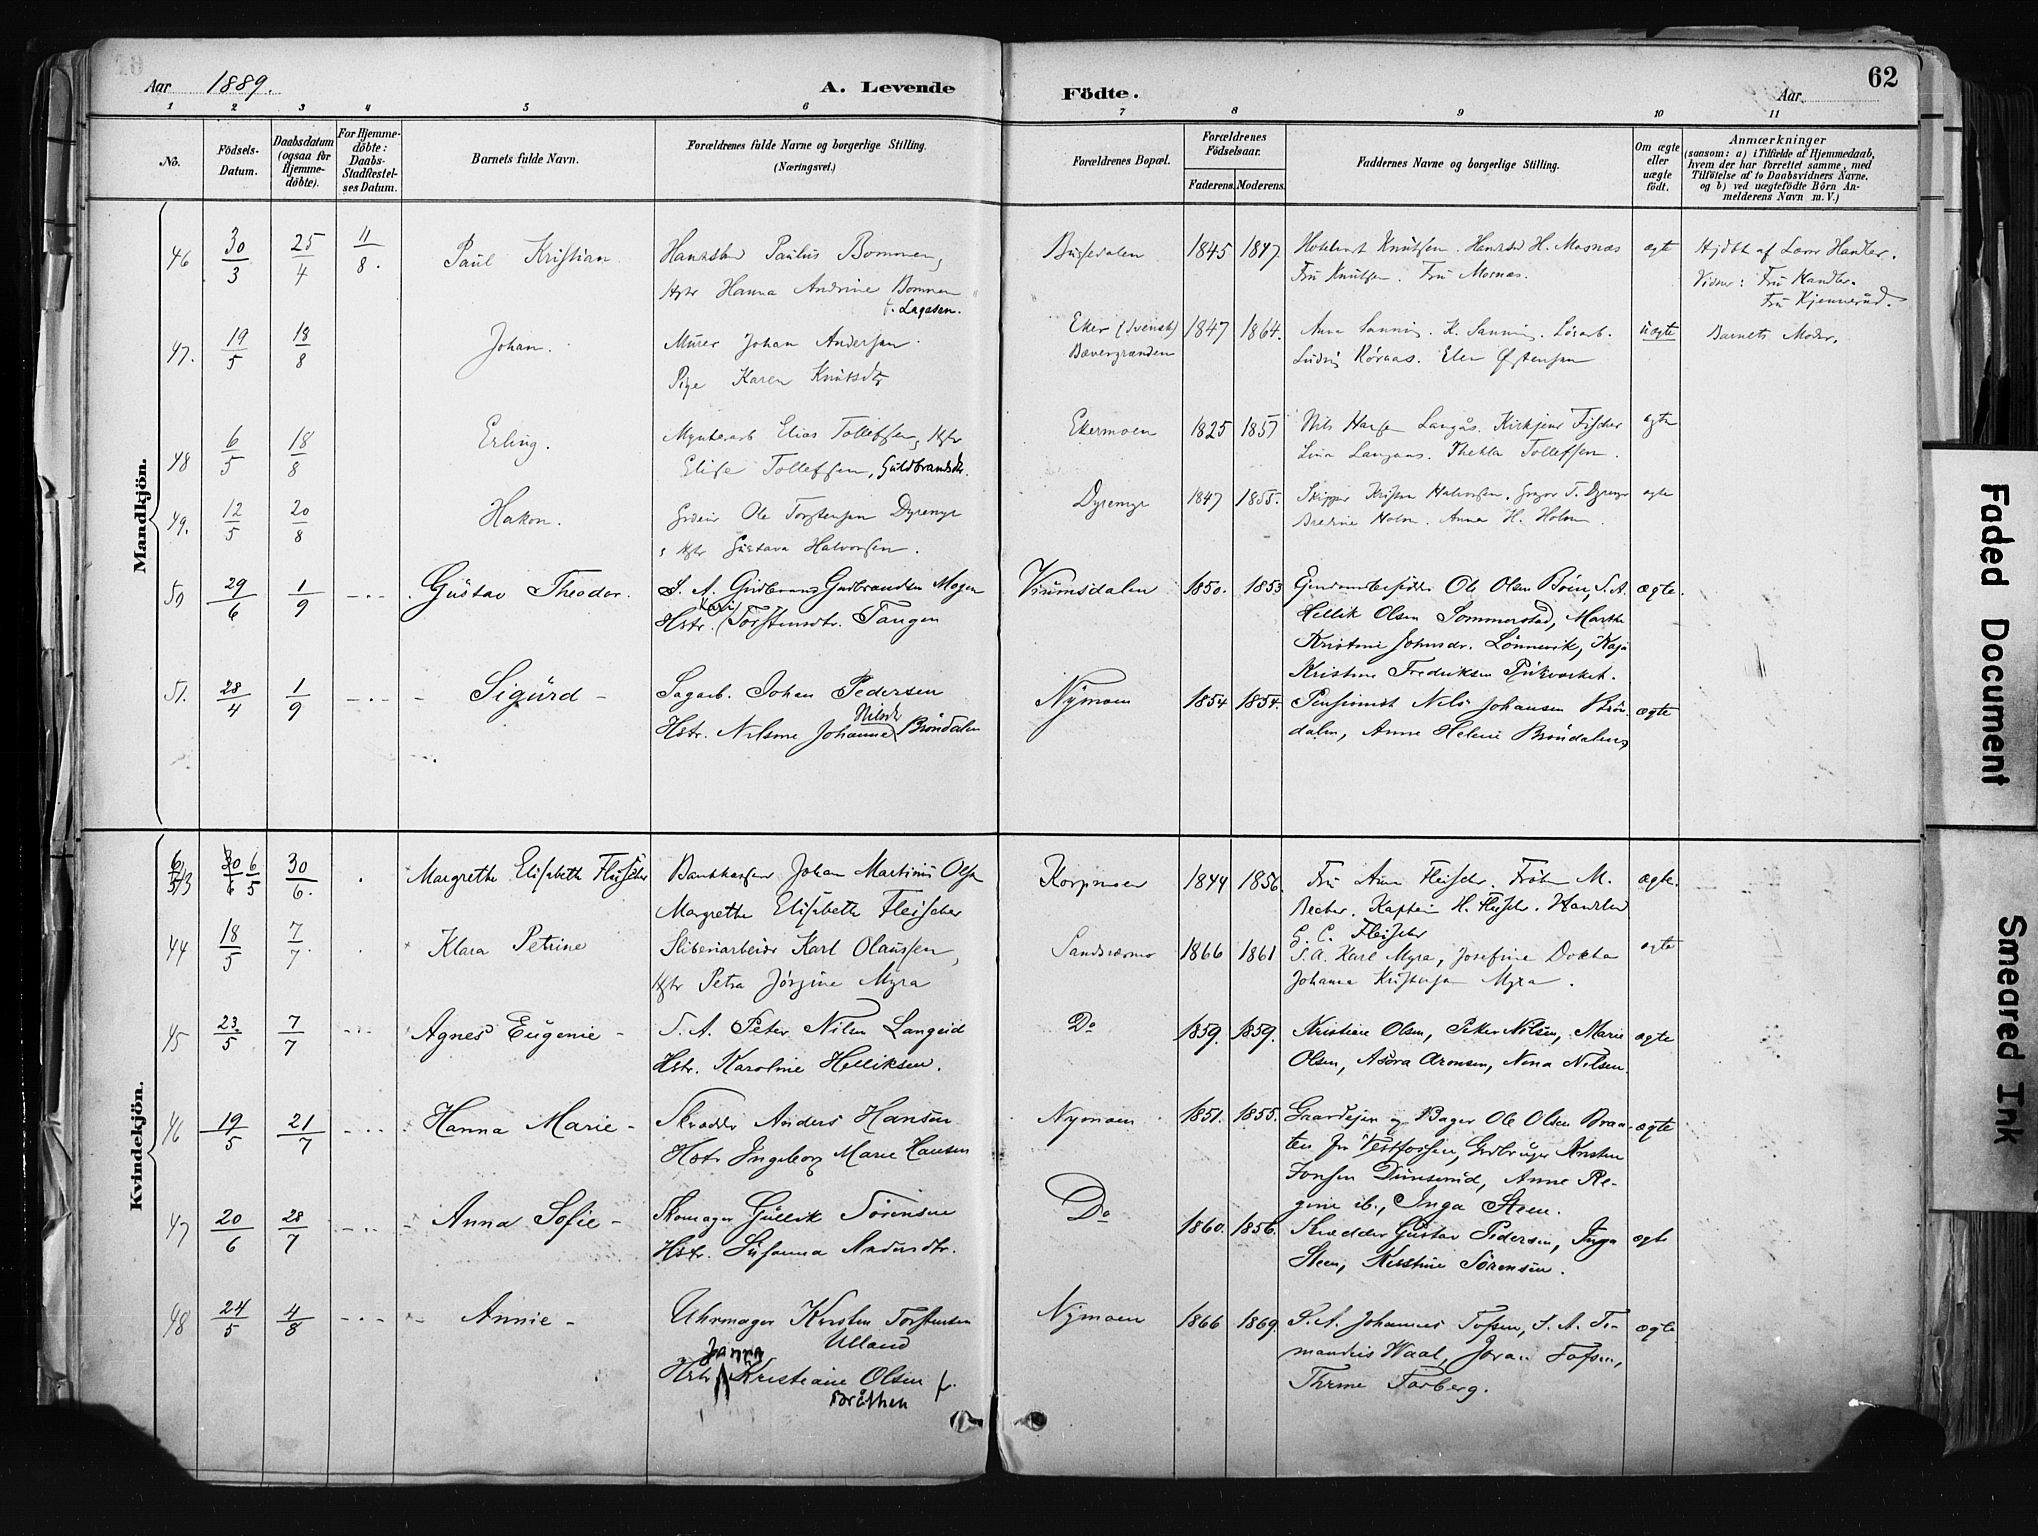 62
Aar 1889.
A. Levende Födte.
Aar
1 2 3 4 5 6 7 8 9 10 11
No.
Födsels-
Datum.
Daabsdatum
(ogsaa for
Hjemme-
döbte).
For Hjemme-
döbte:
Daabs-
Stadfæstel-
ses Datum.
Barnets fulde Navn.
Forældrenes fulde Navne og borgerlige Stilling.
(Næringsvei.)
Forældrenes Bopæl.
Forældrenes
Födselsaar.
Faderens. Moderens.
Faddernes Navne og borgerlige Stilling.
Om ægte
eller
uægte
födt.
Anmærkninger
(saasom: a) i Tilfælde af Hjemmedaab,
hvem der har forrettet samme, med
Tilföielse af to Daabsvidners Navne.
og b) ved uægtefödte Börn An-
melderens Navn m. V.)
Mandkjön.
46 30/3 25/4 11/8. Paul Kristian Handelsbd Paulus Bommen,
Hstr Hanna Andrine Bommen
f. Lagesen.
1845 1847 Knutsen. H. Mosnæs
Fru Knutsen. Fru Mosnæs.
ægte
Hjdbt af Lærer Handler.
Vidner: Fru Handler.
Fru Kjennerud.
47. 19/5 18/8 Johan. Murer Johan Andersen.
Pige Karen Knutsdtr
Eker (Svensk)
Bævergrænden
1847 1864. Anna Sanning. K. Sanning. Lösarb.
Ludvig Röraas. Elen Østensen
uægte
Barnets Moder.
48 6/5 18/8 Erling. Mynterarb Elias Tollefsen, Hstr
Elise Tollefsen, Guldbrandsdtr.
Ekermoen 1825 1857 Nils Hansen Langås. Kirketjener Fischer
Lina Langaas. Thekla Tollefsen.
ægte
49. 12/5 20/8 Hakon. Ole Torstensen Dyremyr
Hstr Gustava Halvorsen.
Dyremyr 1847 1855. Skipper Kristen Halvorsen. Gregor T. Dyremyr
Bredine Holm. Anna H. Holm.
ægte
50 29/6 1/9 Gustav Theodor. S. A. Gudbrand Gudbrandsen Mogen
Hstr. Kari Torstensdtr. Tangen
Krumsdalen 1850. 1853 Eiendomsbesidder Ole Olsen Böen, S. A.
Hellik Olsen Sommerstad, Marthe
Kristine Johnsdr. Lönnevik, Kaja
Kristine Fredriksen
ægte.
51. 28/4 1/9 Sigurd Sagarb. Johan Pedersen
Hstr. Nilsine Johanne Nilsdr Bröndalen
Nymoen 1854 1854. Pensionist Nils Johansen Brön-
dalen, Anne Helene Bröndalen,
ægte
Kvindekjön.
43 6/5 30/6. Margrethe Elisabeth Fleischer Bankkasserer Johan Martinius Olsen
Margrethe Elisabeth Fleischer
Korpmoen 1844 1856. Fru Anna Fleischer. Fröken M.
Becker. Kaptein H. Fleischer. Handler
G. C. Fleischer
ægte.
44 18/5 7/7. Klara Petrine Sliberiarbeider Karl Olaussen,
Hstr Petra Jörgine Myra
Sandsværmo 1866 1861 S. A. Karl Myra, Josefine Dokka
Johanna Kristensen Myra.
ægte
45 23/5 7/7 Agnes Eugenie S. A. Peter Nilsen Langeid
Hstr. Karoline Helliksen.
Do 1859. 1859. Kristiane Olsen, Peter Nilsen, Marie
Olsen, Aronsen, Nona Nilsen.
ægte
46 19/5 21/7 Hanna Marie Skrædder Anders Hansen
Hstr Ingeborg Marie Hansen
Nymoen 1851. 1855. Gaardeier og Bager Ole Olsen Braa-
ten fra Vestfossen, Gdbruger Kristen
Jonsen Dunserud, Anne Re-
gine ib., Inga Steen.
ægte
47 20/6 28/7 Anna Sofie Skomager Gullik Sörensen
Hstr. Susanna Andersdtr.
Do 1860. 1856. Skrædder Gustav Pedersen, Inga
Steen, Kirstine Sörensen.
ægte
48 24/5 4/8 Annie Uhrmager Kirsten Torstensen
Ulland
Hstr Janna Kristiane Olsen f.
Bråthen
Nymoen 1866 1869. S. A. Johannes Tofsen, S. A. Te-
mandus Waal, Joran Tofsen,
Farberg.
ægte
Faded Document
Smeared Ink